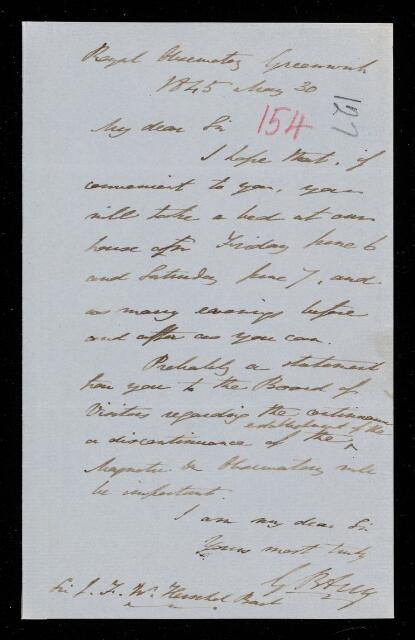 Royal Observatory Greenwich
1845 May 30
154
127
My dear Sir
I hope that, if
convenient to you, you
will take a bed at our
house after Friday June 6
and Saturday June 7, and
as many evenings before
and after as you can.
Probably a statement
from you to the Board of
Visitors regarding the continuance
establishment of the
or discontinuance of the ^
Magnetic &c Observatory will
be important.
I am my dear Sir
Yours most truly
G B Airy
Sir J. F. W. Herschel Bart